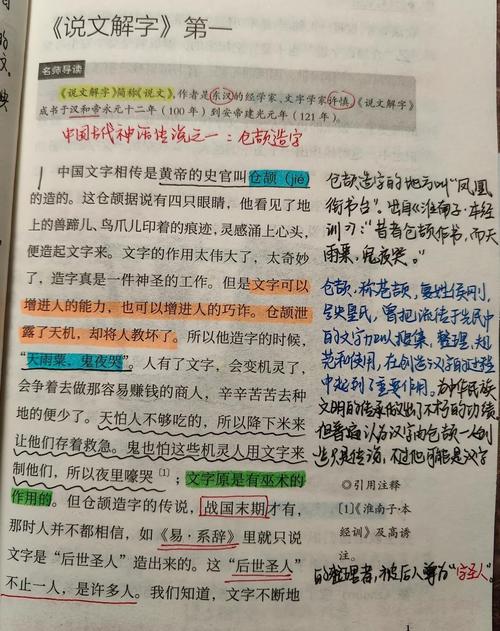 《说文解字》第一
名师导读
《说文解字》简称《说文》,作者是东汉的经学家、文字学家许慎,《说文解字》
成书于汉和帝永元十二年(100年)到安帝建光元年(121年)。
中国古代神话传说之一:仓颉造字
中国文字相传是黄帝的史官叫仓颉(jié)
的造的。这仓颉据说有四只眼睛,他看见了地
上的兽蹄儿、鸟爪儿印着的痕迹,灵感涌上心头,
便造起文字来。文字的作用太伟大了,太奇妙
了,造字真是一件神圣的工作。但是文字可以
增进人的能力,也可以增进人的巧诈。仓颉泄
露了天机,却将人教坏了。所以他造字的时候,
“天雨粟,鬼夜哭”。人有了文字,会变机灵了,
会争着去做那容易赚钱的商人,辛辛苦苦去种
地的便少了。天怕人不够吃的,所以降下米来
让他们存着救急。鬼也怕这些机灵人用文字来
制他们,所以夜里嚎哭[1];文字原是有巫术的
作用的。但仓颉造字的传说,战国末期才有,
那时人并不都相信,如《易·系辞》里就只说
文字是“后世圣人”造出来的。这“后世圣人”
不止一人,是许多人。我们知道,文字不断地
仓颉造字的地方叫“凤凰
衔书台”。出自《淮南子·本经
训》:“昔者仓颉作书,而天
雨粟,鬼夜哭。”
仓颉,称苍颉,复姓侯刚,
号史皇氏,曾把流传于先民中
的文字加以搜集、整理、规
范和使用,在创造汉字的过程
中起到了重要作用。为中华民族
文明的传承做出了不朽的功绩。
但普遍认为汉字由仓颉一人创
造只是传说,不过他可能是汉字
◎引用注释
[1]《淮南子·本
经训》及高诱
注。
的整理者,被后人尊为“字圣人”
1